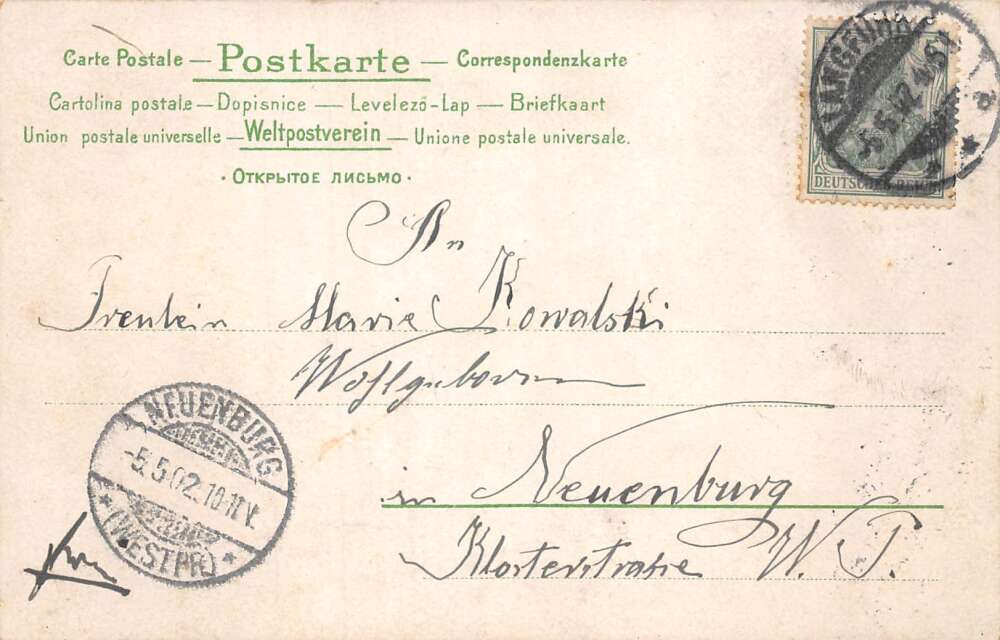 Carte Postale — Postkarte — Correspondenzkarte
Cartolina postale — Dopisnice — Levelező-Lap — Briefkaart
Union postale universelle — Weltpostverein — Unione postale universale.
· Открытое письмо ·
LANGFUHR
5.5.02
DEUTSCHES REICH
An
Freulein Marie Kowalski
Wohlgeboren
in Neuenburg
Klosterstraße W. P.
NEUENBURG
-5.5.02.10-11V.
* (WESTPR) *